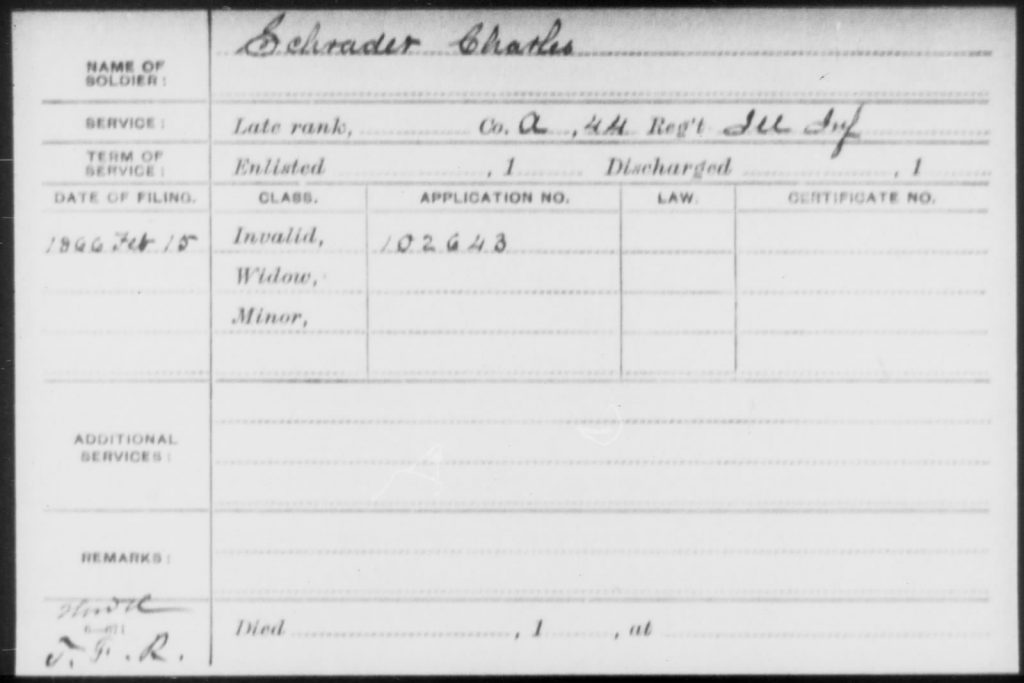 Schrader Charles
NAME OF
SOLDIER:
SERVICE: Late rank, Co. A, 44 Reg't Ill Inf
TERM OF
SERVICE: Enlisted , 1 Discharged , 1
DATE OF FILING. CLASS. APPLICATION NO. LAW. CERTIFICATE NO.
1866 Feb 15 Invalid, 102643
Widow,
Minor,
ADDITIONAL
SERVICES:
REMARKS:
Died , 1 , at